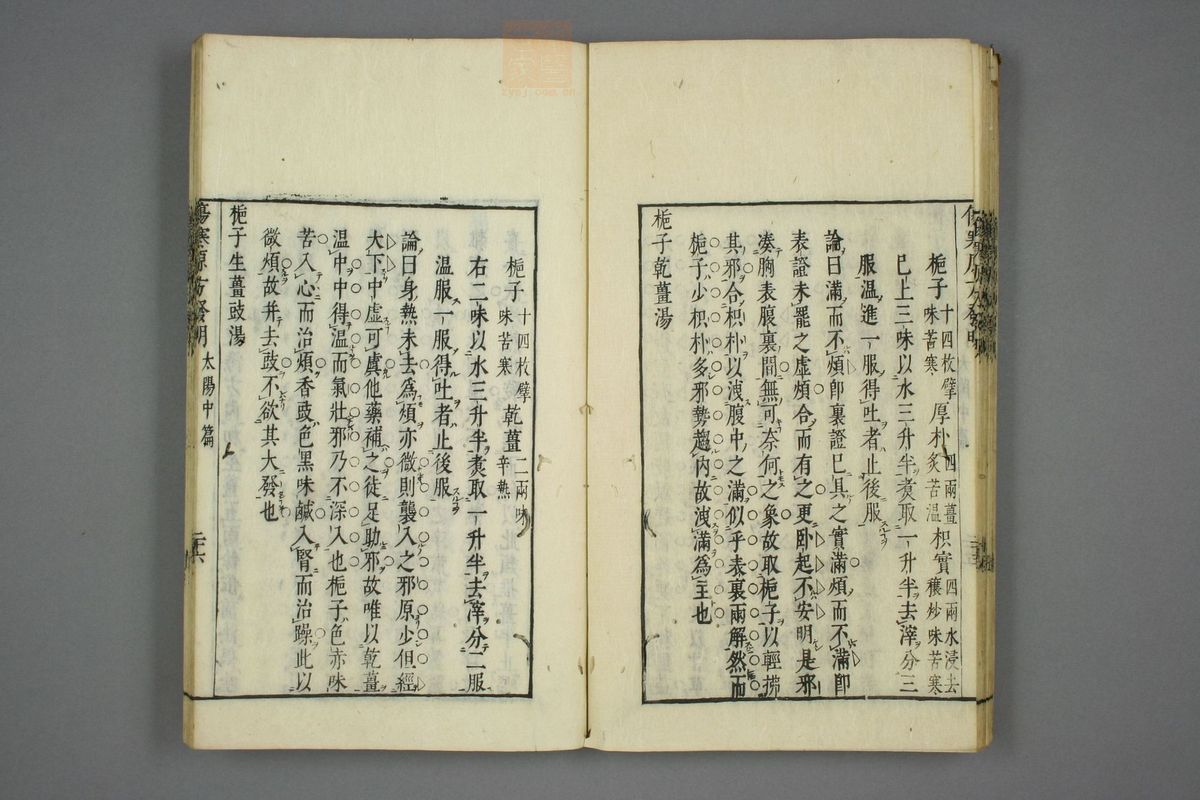 梔子十四枚擘味苦寒厚朴四兩薑炙苦温枳實四兩水浸去穰炒味苦寒
已上三味以水三升半煑取一升半去滓分三
服温進一服得吐者止後服
論曰滿而不煩卽裏證已具之實滿煩而不滿卽
表證未罷之虛煩合而有之更卧起不安明是邪
凑胸表腹裏間無可奈何之象故取梔子以輕拂
其邪合枳朴以洩腹中之滿似乎表裏兩解然而
梔子少枳朴多邪勢趨内故洩滿為主也
梔子乾薑湯
梔子十四枚擘味苦寒乾薑二兩味辛熱
右二味以水三升半煑取一升半去滓分二服
温服一服得吐者止後服
論曰身熱未去為煩亦微則襲入之邪原少但經
大下中虛可虞他藥補之徒足助邪故唯以乾薑
温中中得温而氣壯邪乃不深入也梔子色赤味
苦入心而治煩香豉色黑味鹹入腎而治躁此以
微煩故并去豉不欲其大發也
梔子生薑豉湯
傷寒原方發明 太陽中篇 二六
zysj.com.cn